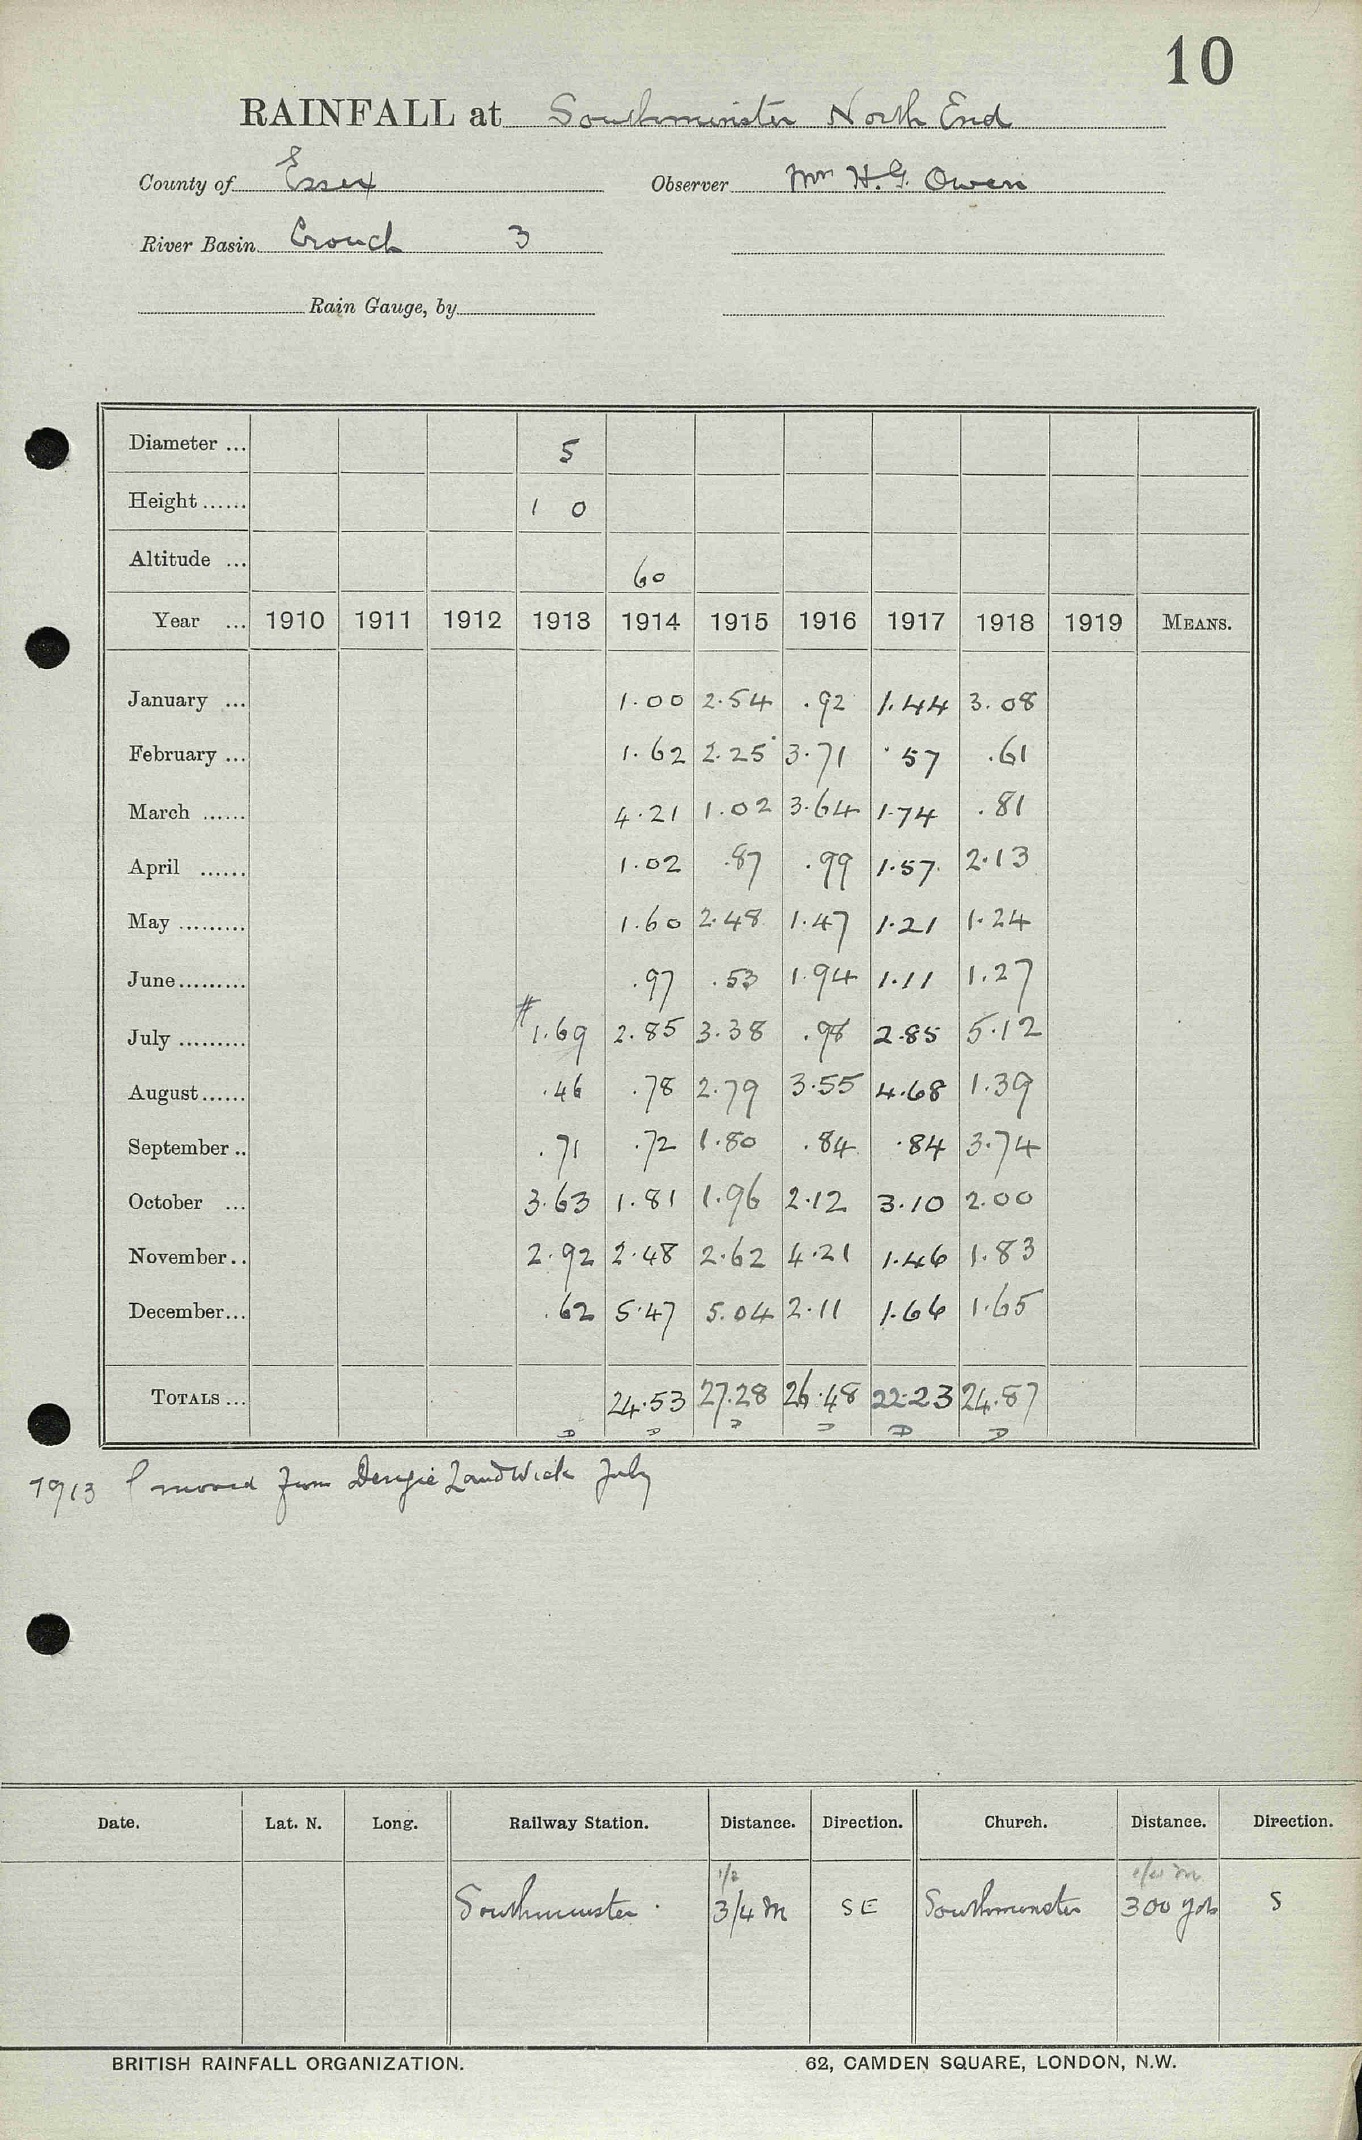 10
RAINFALL at Southminster North End
County of Essex Observer Mrs H. G. Owen
River Basin Crouch 3
Rain Gauge, by
Diameter ... 5
Height ...... 1 0
Altitude ... 60
Year ... 1910 1911 1912 1913 1914 1915 1916 1917 1918 1919 MEANS.
January ... 1.00 2.54 .92 1.44 3.08
February ... 1.62 2.25 3.71 .57 .61
March ...... 4.21 1.02 3.64 1.74 .81
April ...... 1.02 .87 .99 1.57 2.13
May ......... 1.60 2.48 1.47 1.21 1.24
June ......... .97 .53 1.94 1.11 1.27
July ......... # 1.69 2.85 3.38 .98 2.85 5.12
August ...... .46 .78 2.79 3.55 4.68 1.39
September .. .71 .72 1.80 .84 .84 3.74
October ... 3.63 1.81 1.96 2.12 3.10 2.00
November .. 2.92 2.48 2.62 4.21 1.46 1.83
December ... .62 5.47 5.04 2.11 1.66 1.65
TOTALS ... 24.53 27.28 26.48 22.23 24.87
D D D D D D
1913 moved from Dengie Landwick July
Date. Lat. N. Long. Railway Station. Distance. Direction. Church. Distance. Direction.
1/2
Southminster 3/4 m SE Southminster 300 yds S
BRITISH RAINFALL ORGANIZATION. 62, CAMDEN SQUARE, LONDON, N.W.